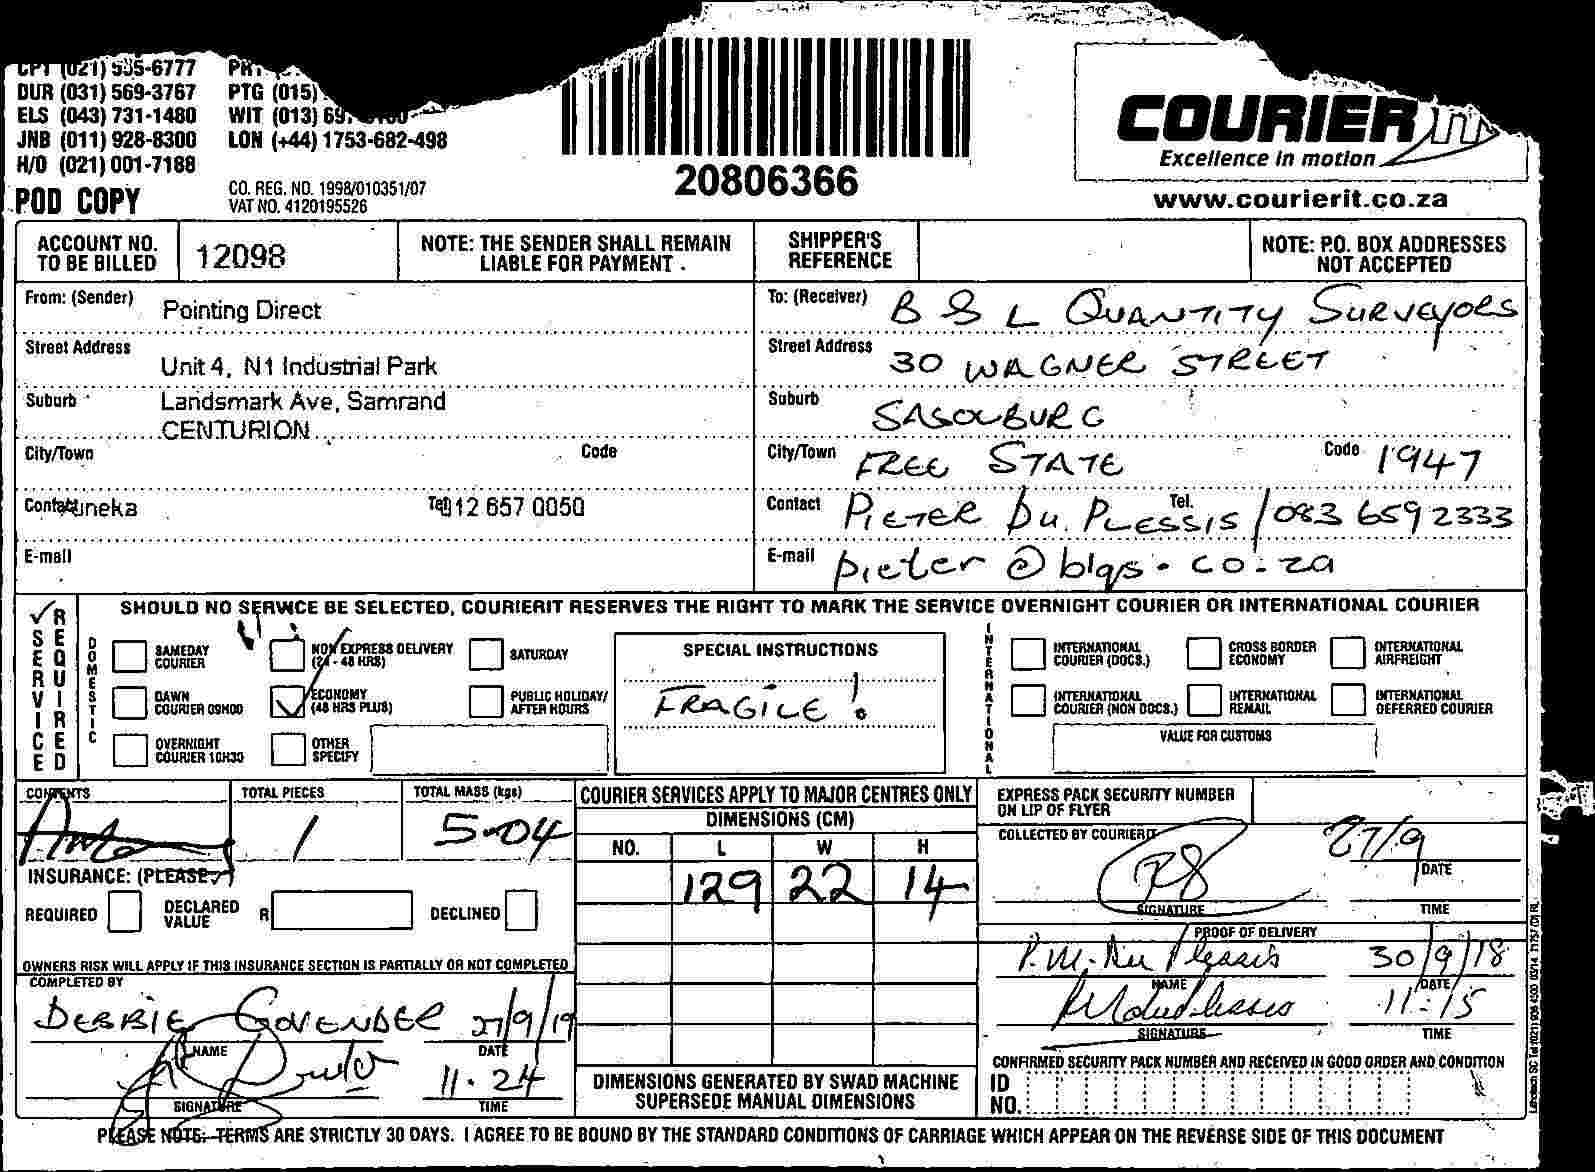 CPT (021) 555-6777
DUR (031) 569-3767 PTG (015)
ELS (043) 731-1480 WIT (013)
JNB (011) 928-8300 LON (+44) 1753-682-498
H/O (021) 001-7188
POD COPY
CO. REG. NO. 1998/010351/07
VAT NO. 4120195526
20806366
COURIER IT
Excellence in motion
www.courierit.co.za
ACCOUNT NO. TO BE BILLED
12098
NOTE: THE SENDER SHALL REMAIN LIABLE FOR PAYMENT.
SHIPPER'S REFERENCE
NOTE: P.O. BOX ADDRESSES NOT ACCEPTED
From: (Sender) Pointing Direct
Street Address
Unit 4, N1 Industrial Park
Suburb Landsmark Ave, Samrand
CENTURION
City/Town Code
Contact Tel 012 657 0050
E-mail
To: (Receiver) B & L QUANTITY SURVEYORS
Street Address 30 WAGNER STREET
Suburb SASOLBURG
City/Town FREE STATE Code 1947
Contact PIETER DU PLESSIS Tel. 083 659 2333
E-mail pieter@blqs.co.za
SERVICE REQUIRED
SHOULD NO SERVICE BE SELECTED, COURIERIT RESERVES THE RIGHT TO MARK THE SERVICE OVERNIGHT COURIER OR INTERNATIONAL COURIER
DOMESTIC
SAMEDAY COURIER
NON EXPRESS DELIVERY (24 - 48 HRS)
SATURDAY
DAWN COURIER 09H00
ECONOMY (48 HRS PLUS)
PUBLIC HOLIDAY/ AFTER HOURS
OVERNIGHT COURIER 10H30
OTHER SPECIFY
SPECIAL INSTRUCTIONS
FRAGILE!
INTERNATIONAL
INTERNATIONAL COURIER (DOCS.)
CROSS BORDER ECONOMY
INTERNATIONAL AIRFREIGHT
INTERNATIONAL COURIER (NON DOCS.)
INTERNATIONAL REMAIL
INTERNATIONAL DEFERRED COURIER
VALUE FOR CUSTOMS
CONTENTS
TOTAL PIECES
1
TOTAL MASS (kgs)
5-04
INSURANCE: (PLEASE ✓)
REQUIRED
DECLARED VALUE R
DECLINED
OWNERS RISK WILL APPLY IF THIS INSURANCE SECTION IS PARTIALLY OR NOT COMPLETED
COMPLETED BY
DEBBIE GOVENDER 27/9/19
NAME DATE
11.24
SIGNATURE TIME
COURIER SERVICES APPLY TO MAJOR CENTRES ONLY
DIMENSIONS (CM)
NO. L W H
129 22 14
DIMENSIONS GENERATED BY SWAD MACHINE SUPERSEDE MANUAL DIMENSIONS
EXPRESS PACK SECURITY NUMBER ON LIP OF FLYER
COLLECTED BY COURIERIT
27/9
DATE
SIGNATURE TIME
PROOF OF DELIVERY
P.M. Du Plessis 30/9/18
NAME DATE
11:15
SIGNATURE TIME
CONFIRMED SECURITY PACK NUMBER AND RECEIVED IN GOOD ORDER AND CONDITION
ID NO.
PLEASE NOTE: TERMS ARE STRICTLY 30 DAYS. I AGREE TO BE BOUND BY THE STANDARD CONDITIONS OF CARRIAGE WHICH APPEAR ON THE REVERSE SIDE OF THIS DOCUMENT